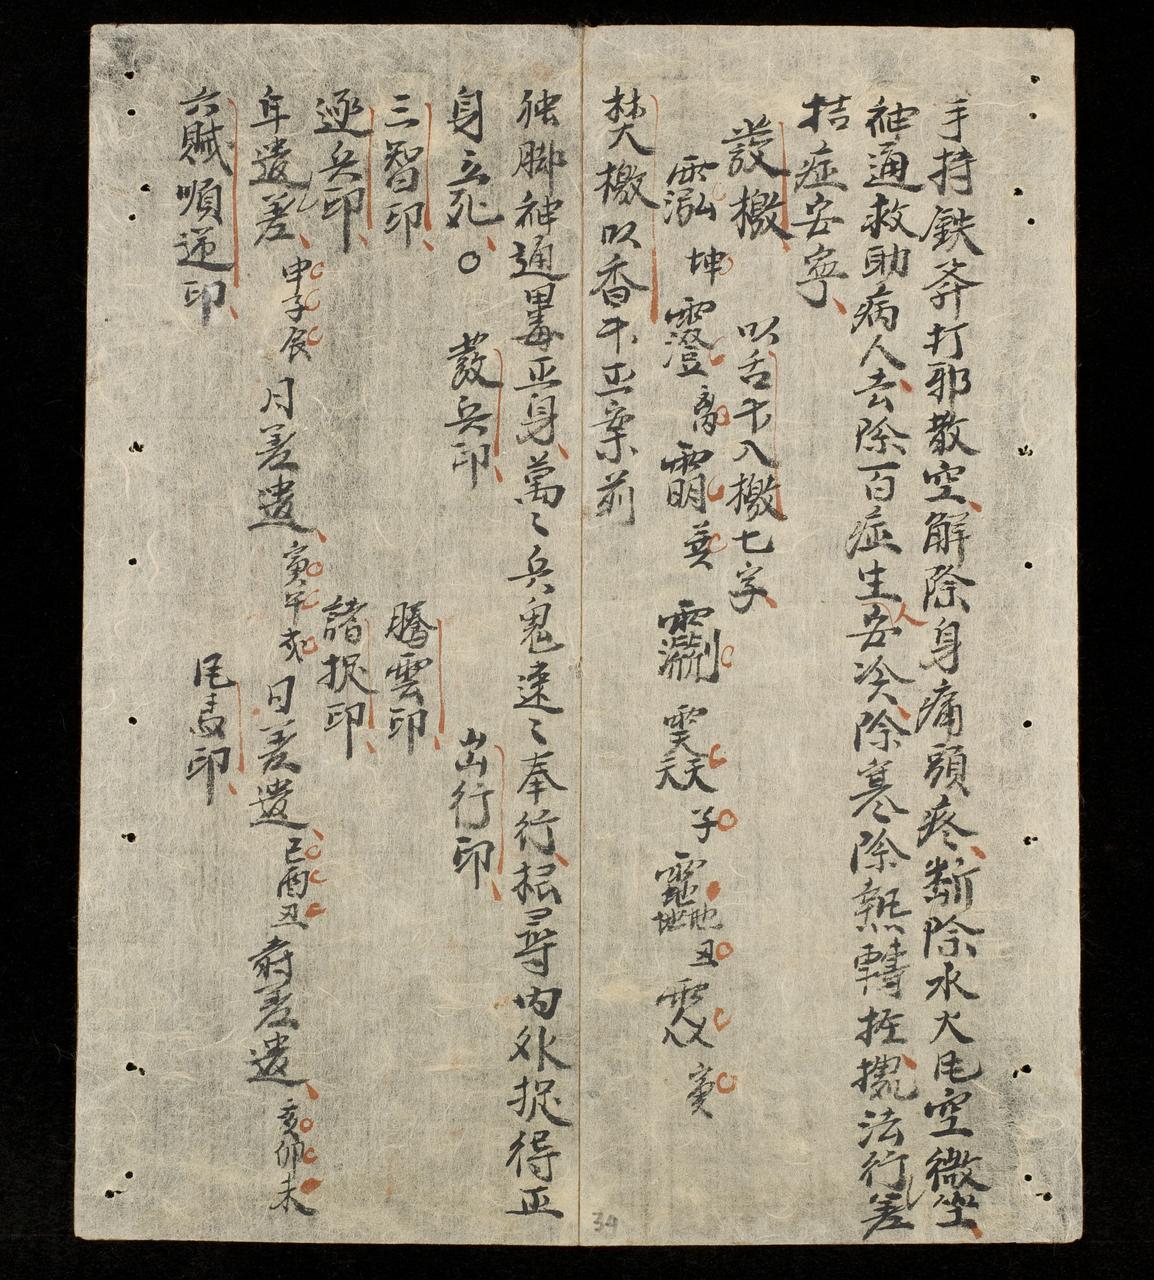 手持鉄斧打邪散空解除身痛頭疼断除水火風空微塵
神通救助病人去除百症生人安冷除寒除熱轉挓攪法行差
拮症安寧
發檄 以舌卞入檄七字
坤 離 巽 子 丑 寅
焚檄以香卞正案前
独脚神通畢毒正身萬〻兵鬼速〻奉行根尋内外捉得正
身立死〇 發兵印 出行印
三智印 騰雲印
逐兵印 諸捉印
年遣差 申子辰 月差遣 寅午戌 日差遣 巳酉丑 時差遣 亥卯未
六賊順逆印 風馬印
34